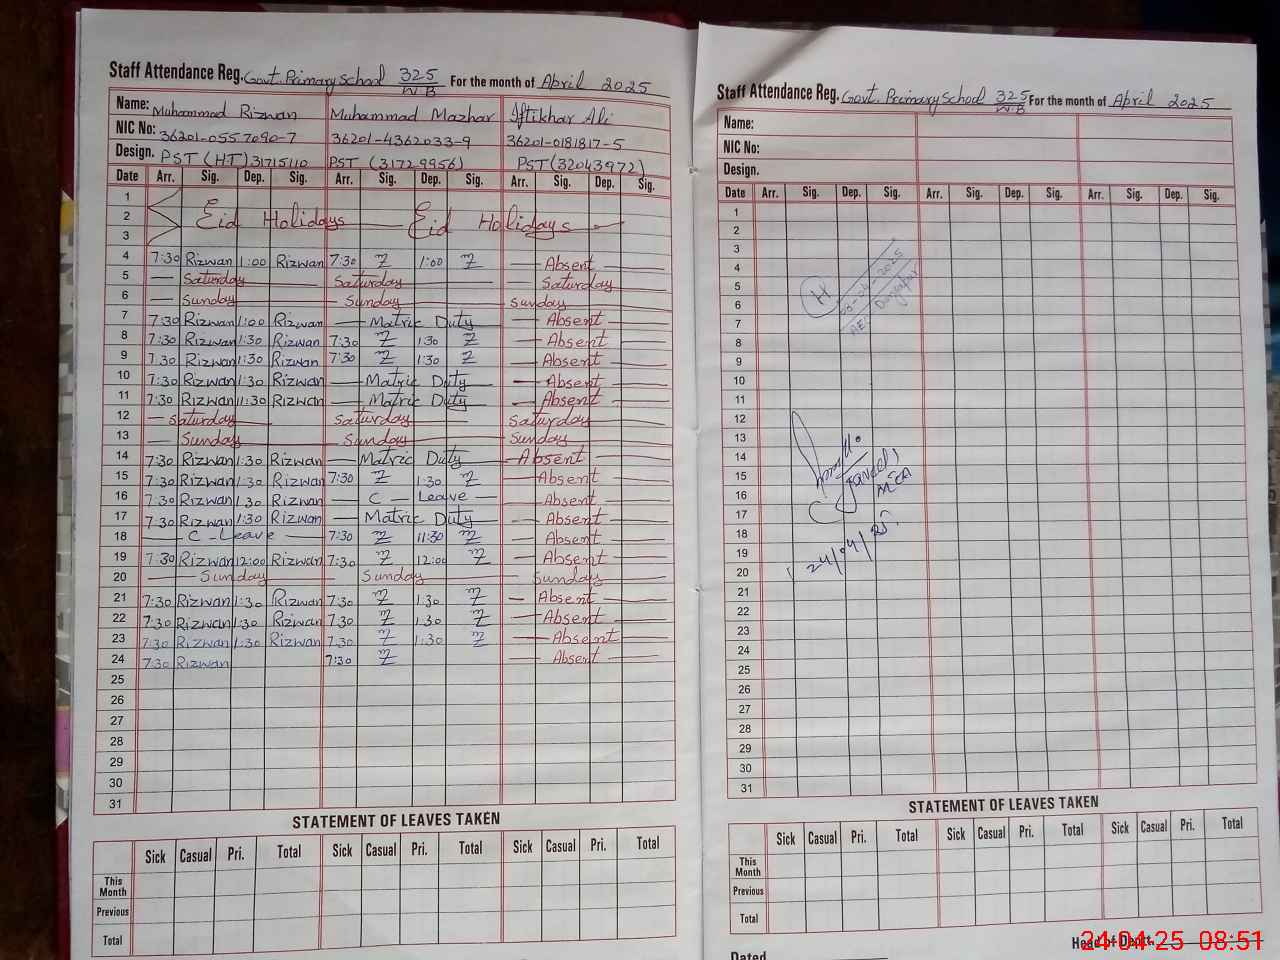 Staff Attendance Reg. Govt. Primary School 325/WB For the month of April 2025
Name: Muhammad Rizwan Muhammad Mazhar Iftikhar Ali
NIC No: 36201-0557090-7 36201-4362033-9 36201-0181817-5
Design. PST (HT) 31715110 PST (31729956) PST (32043972)
Date Arr. Sig. Dep. Sig. Arr. Sig. Dep. Sig. Arr. Sig. Dep. Sig.
1
2 Eid Holidays Eid Holidays
3
4 7:30 Rizwan 1:00 Rizwan 7:30 1:00 Absent
5 Saturday Saturday Saturday
6 Sunday Sunday Sunday
7 7:30 Rizwan 1:00 Rizwan Matric Duty Absent
8 7:30 Rizwan 1:30 Rizwan 7:30 1:30 Absent
9 7:30 Rizwan 1:30 Rizwan 7:30 1:30 Absent
10 7:30 Rizwan 1:30 Rizwan Matric Duty Absent
11 7:30 Rizwan 11:30 Rizwan Matric Duty Absent
12 Saturday Saturday Saturday
13 Sunday Sunday Sunday
14 7:30 Rizwan 1:30 Rizwan Matric Duty Absent
15 7:30 Rizwan 1:30 Rizwan 7:30 1:30 Absent
16 7:30 Rizwan 1:30 Rizwan C - Leave Absent
17 7:30 Rizwan 1:30 Rizwan Matric Duty Absent
18 C - Leave 7:30 11:30 Absent
19 7:30 Rizwan 12:00 Rizwan 7:30 12:00 Absent
20 Sunday Sunday Sunday
21 7:30 Rizwan 1:30 Rizwan 7:30 1:30 Absent
22 7:30 Rizwan 1:30 Rizwan 7:30 1:30 Absent
23 7:30 Rizwan 1:30 Rizwan 7:30 1:30 Absent
24 7:30 Rizwan 7:30 Absent
25
26
27
28
29
30
31
STATEMENT OF LEAVES TAKEN
Sick Casual Pri. Total Sick Casual Pri. Total Sick Casual Pri. Total
This Month
Previous
Total
Staff Attendance Reg. Govt. Primary School 325/WB For the month of April 2025
Name:
NIC No:
Design.
Date Arr. Sig. Dep. Sig. Arr. Sig. Dep. Sig. Arr. Sig. Dep. Sig.
1
2
3
4
5
6
7
8
9
10
11
12
13
14
15
16
17
18
19
20
21
22
23
24
25
26
27
28
29
30
31
H
-04-2025
AEO
Javed
MEA
24/04/25
STATEMENT OF LEAVES TAKEN
Sick Casual Pri. Total Sick Casual Pri. Total Sick Casual Pri. Total
This Month
Previous
Total
Head of Deptt.
Dated
24-04-25 08:51